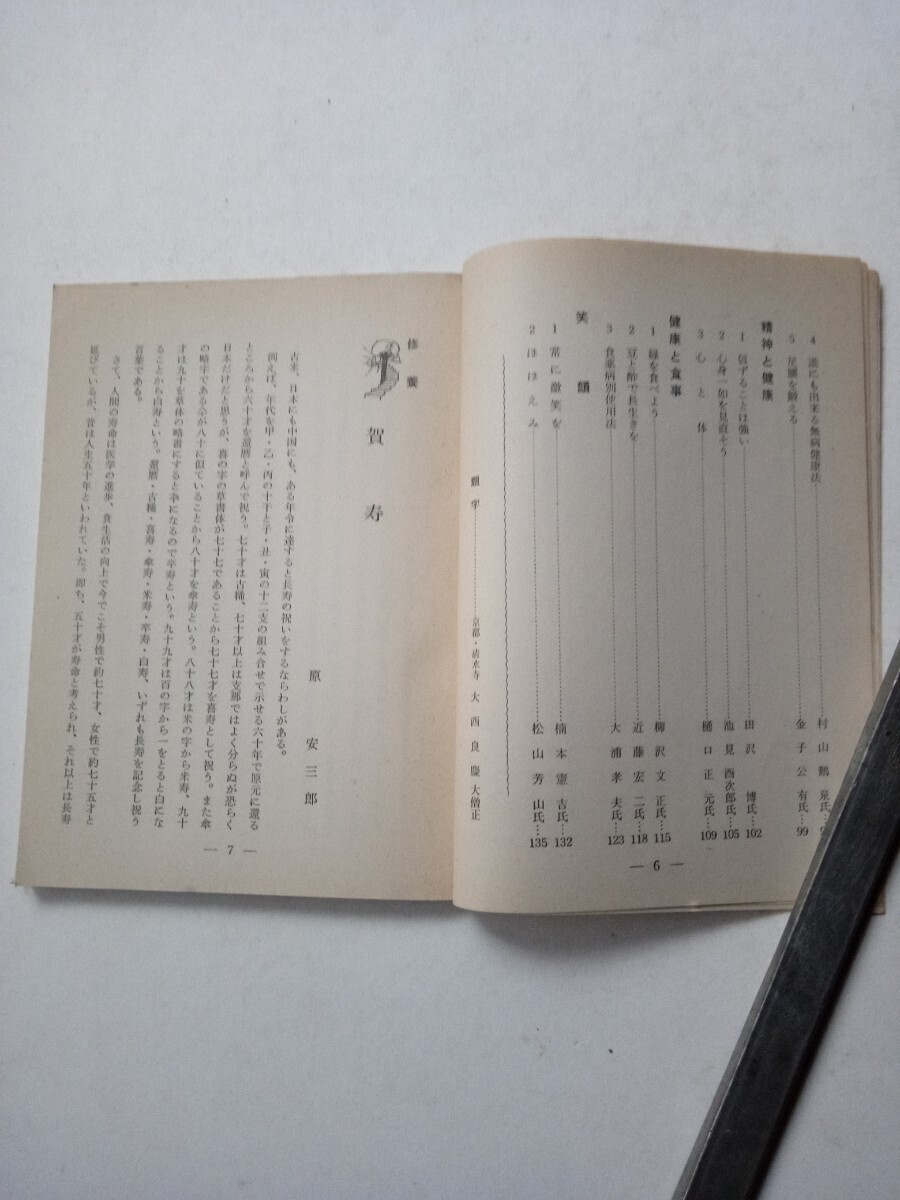 4 誰にも出来る無病健康法 村山鶴泉氏
5 足腰を鍛える 金子公有氏…99
精神と健康
1 信ずることは強い 田沢博氏…102
2 心身一如を見直そう 池見酉次郎氏…105
3 心と体 樋口正元氏…109
健康と食事
1 緑を食べよう 柳沢文正氏…115
2 豆と酢で長生きを 近藤宏二氏…118
3 食薬病別使用法 大浦孝夫氏…123
笑顔
1 常に微笑を 楠本憲吉氏…132
2 ほほえみ 松山芳山氏…135
題字 京都・清水寺 大西良慶大僧正
— 6 —
修養
賀寿
原安三郎
古来、日本にも中国にも、ある年令に達すると長寿の祝いをするならわしがある。
例えば、年代を甲・乙・丙の十干と子・丑・寅の十二支の組み合せで示せる六十年で原元に還る
ところから六十才を還暦と呼んで祝う。七十才は古稀、七十才以上は支那ではよく分らぬが恐らく
日本だけだと思うが、喜の字の草書体が七十七であることから七十七才を喜寿として祝う。また傘
の略字である仐が八十に似ていることから八十才を傘寿という。八十八才は米の字から米寿、九十
才は九十を草体の略書にすると卆になるので卒寿という。九十九才は百の字から一をとると白にな
ることから白寿という。還暦・古稀・喜寿・傘寿・米寿・卒寿・白寿、いずれも長寿を記念し祝う
言葉である。
さて、人間の寿命は医学の進歩、食生活の向上で今でこそ男性で約七十才、女性で約七十五才と
延びているが、昔は人生五十年といわれていた。即ち、五十才が寿命と考えられ、それ以上は長寿
— 7 —